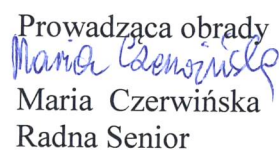 Prowadząca obrady
Maria Czerwińska
Maria Czerwińska
Radna Senior